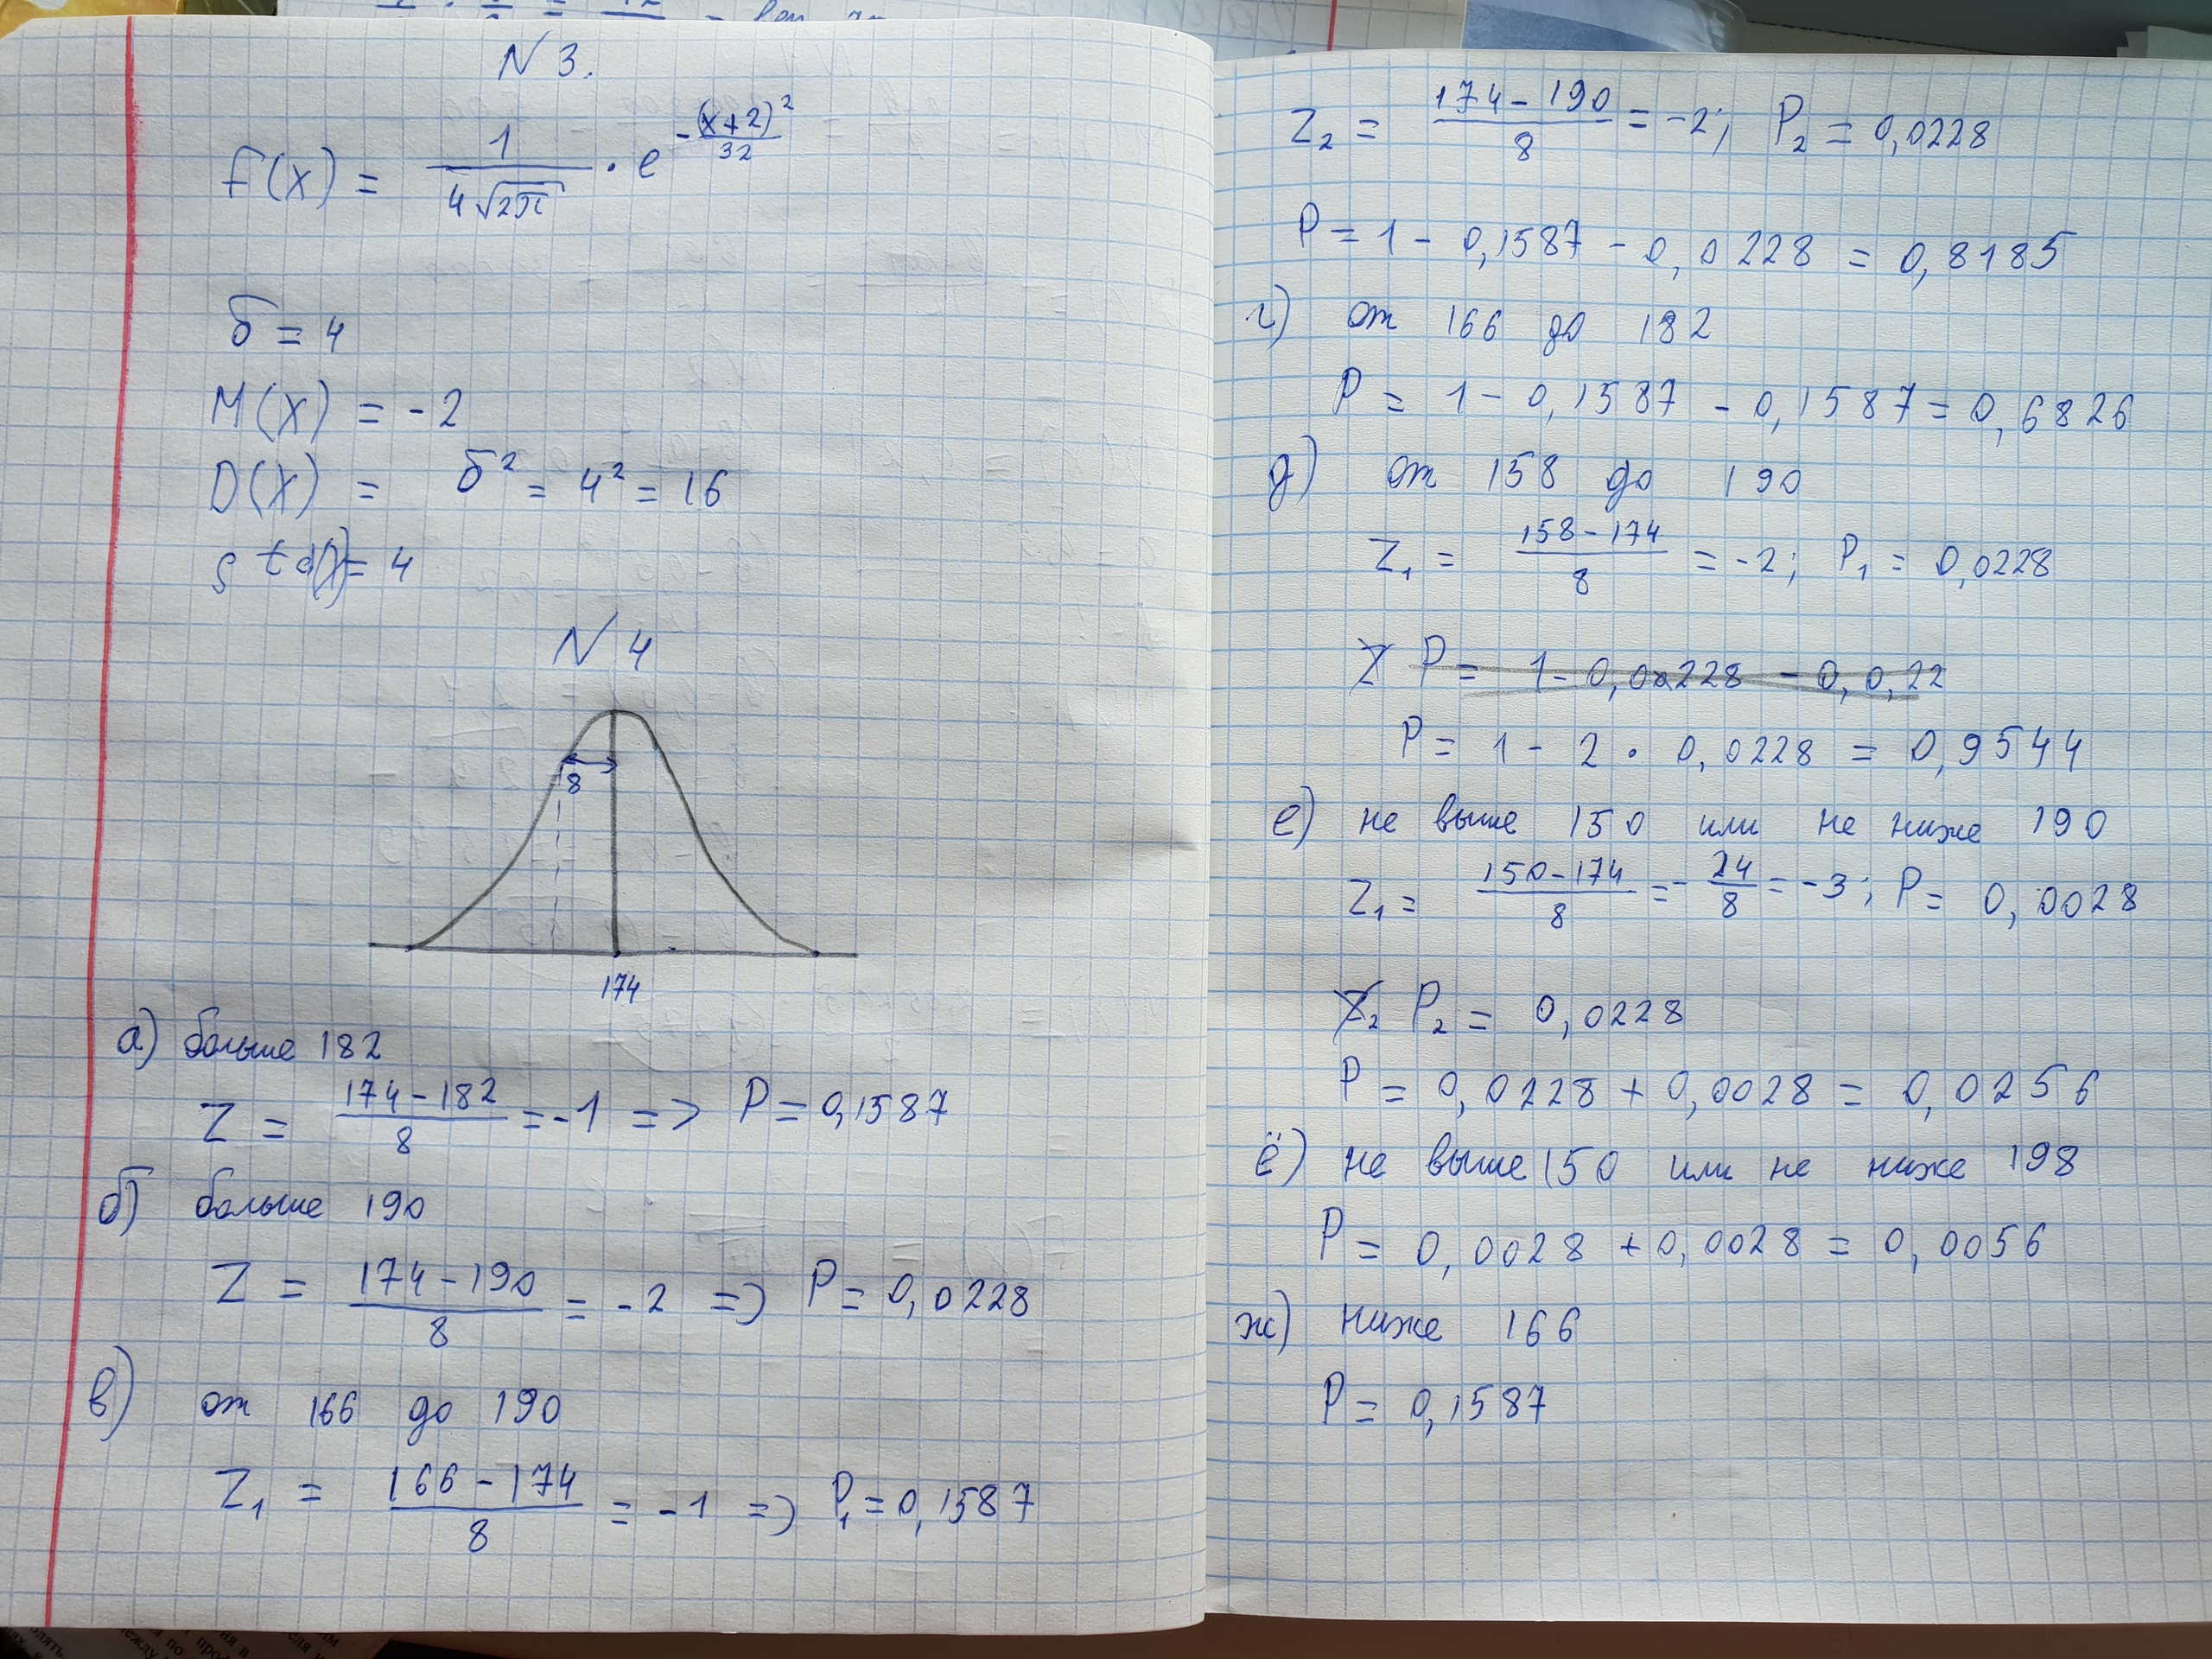 N 3.
F(x) = 1 / 4√2π · e^-(x+2)²/32
б = 4
M(X) = -2
D(X) = б² = 4² = 16
std(X) = 4
N 4
8
174
а) больше 182
Z = 174-182 / 8 = -1 => P = 0,1587
б) больше 190
Z = 174-190 / 8 = -2 => P = 0,0228
в) от 166 до 190
Z₁ = 166-174 / 8 = -1 => P₁ = 0,1587
Z₂ = 174-190 / 8 = -2; P₂ = 0,0228
P = 1 - 0,1587 - 0,0228 = 0,8185
г) от 166 до 182
P = 1 - 0,1587 - 0,1587 = 0,6826
д) от 158 до 190
Z₁ = 158-174 / 8 = -2; P₁ = 0,0228
P = 1 - 2 · 0,0228 = 0,9544
е) не выше 150 или не ниже 190
Z₁ = 150-174 / 8 = - 24 / 8 = -3; P = 0,0028
P₂ = 0,0228
P = 0,0228 + 0,0028 = 0,0256
ё) не выше 150 или не ниже 198
P = 0,0028 + 0,0028 = 0,0056
ж) ниже 166
P = 0,1587